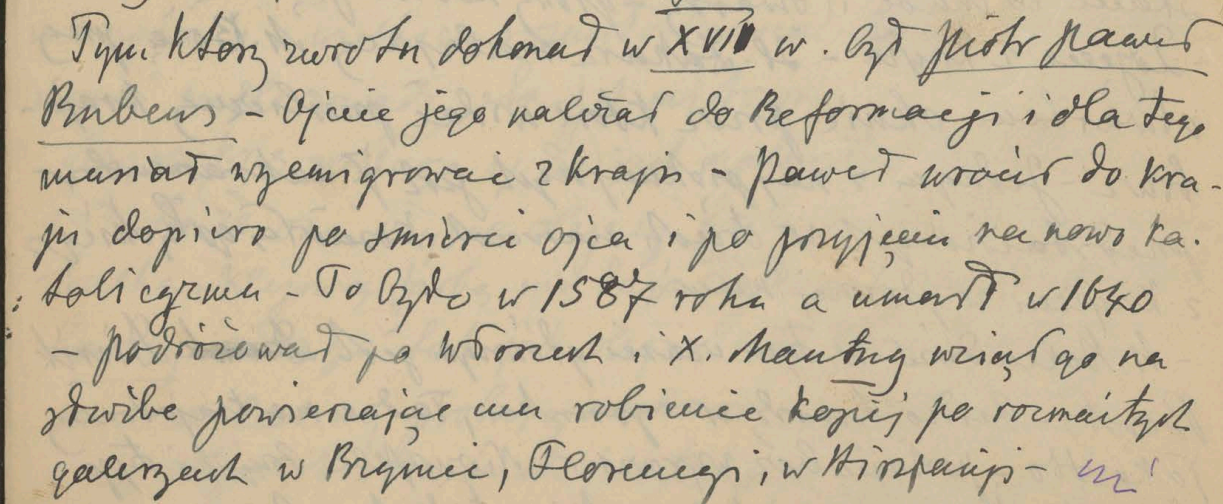 Tym który zwrotu dokonał w XVII w. był Piotr Paweł
Rubens – Ojciec jego należał do Reformacji i dla tego
musiał wyemigrować z kraju – Paweł wrócił do kra-
ju dopiero po śmierci ojca i po przyjęciu na nowo ka-
tolicyzmu – To było w 1587 roku a umarł w 1640
– podróżował po Włoszech i X. Mantuy wziął go na
służbę powierzając mu robienie kopij po rozmaitych
galeryach w Rzymie, Florencyi, w Hiszpanji –